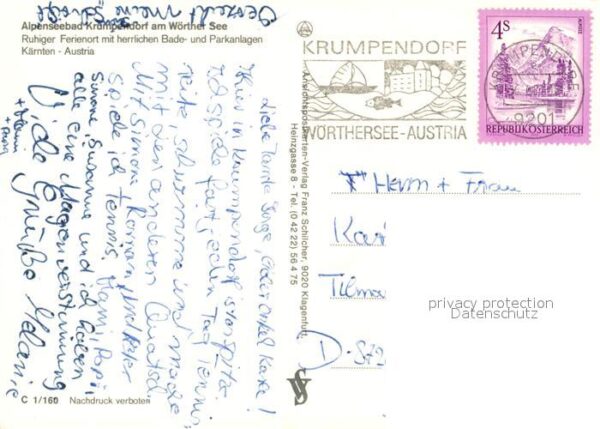 Alpenseebad Krumpendorf am Wörther See
Ruhiger Ferienort mit herrlichen Bade- und Parkanlagen
Kärnten - Austria
Liebe Tante Inge, lieber Onkel Karl!
Hier in Krumpendorf ist
Ich spiele fast jeden Tag Tennis,
reite, schwimme und mache
mit den anderen Quatsch.
Mit Simone, Romana und Peter
spiele ich Tennis. Mami, Papi,
Simone, Susanne und ich haben
alle eine Magenverstimmung
Viele Grüße Melanie
+ Mami
+ Papi
C 1/160 Nachdruck verboten
Ansichtspostkarten-Verlag Franz Schilcher, 9020 Klagenfurt,
Heinzgasse 8 - Tel. (0 42 22) 56 4 75
KRUMPENDORF
WÖRTHERSEE-AUSTRIA
KRUMPENDORF
9201
4S
REPUBLIK ÖSTERREICH
Herrn + Frau
Karl
Tilma
D-572
privacy protection
Datenschutz